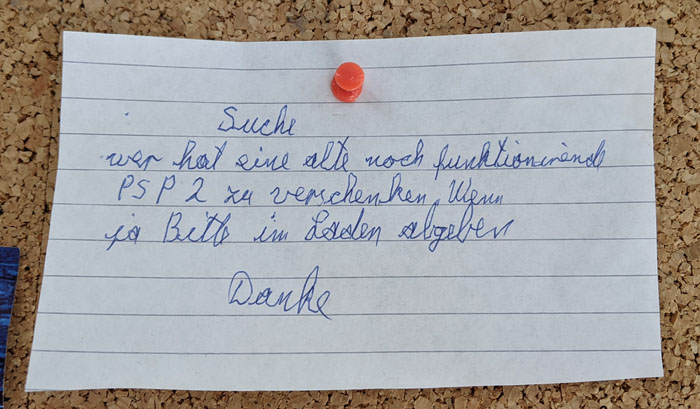 Suche
wer hat eine alte noch funktionirend
PSP 2 zu verschenken, Wenn
ja Bitte im Laden abgeben
Danke